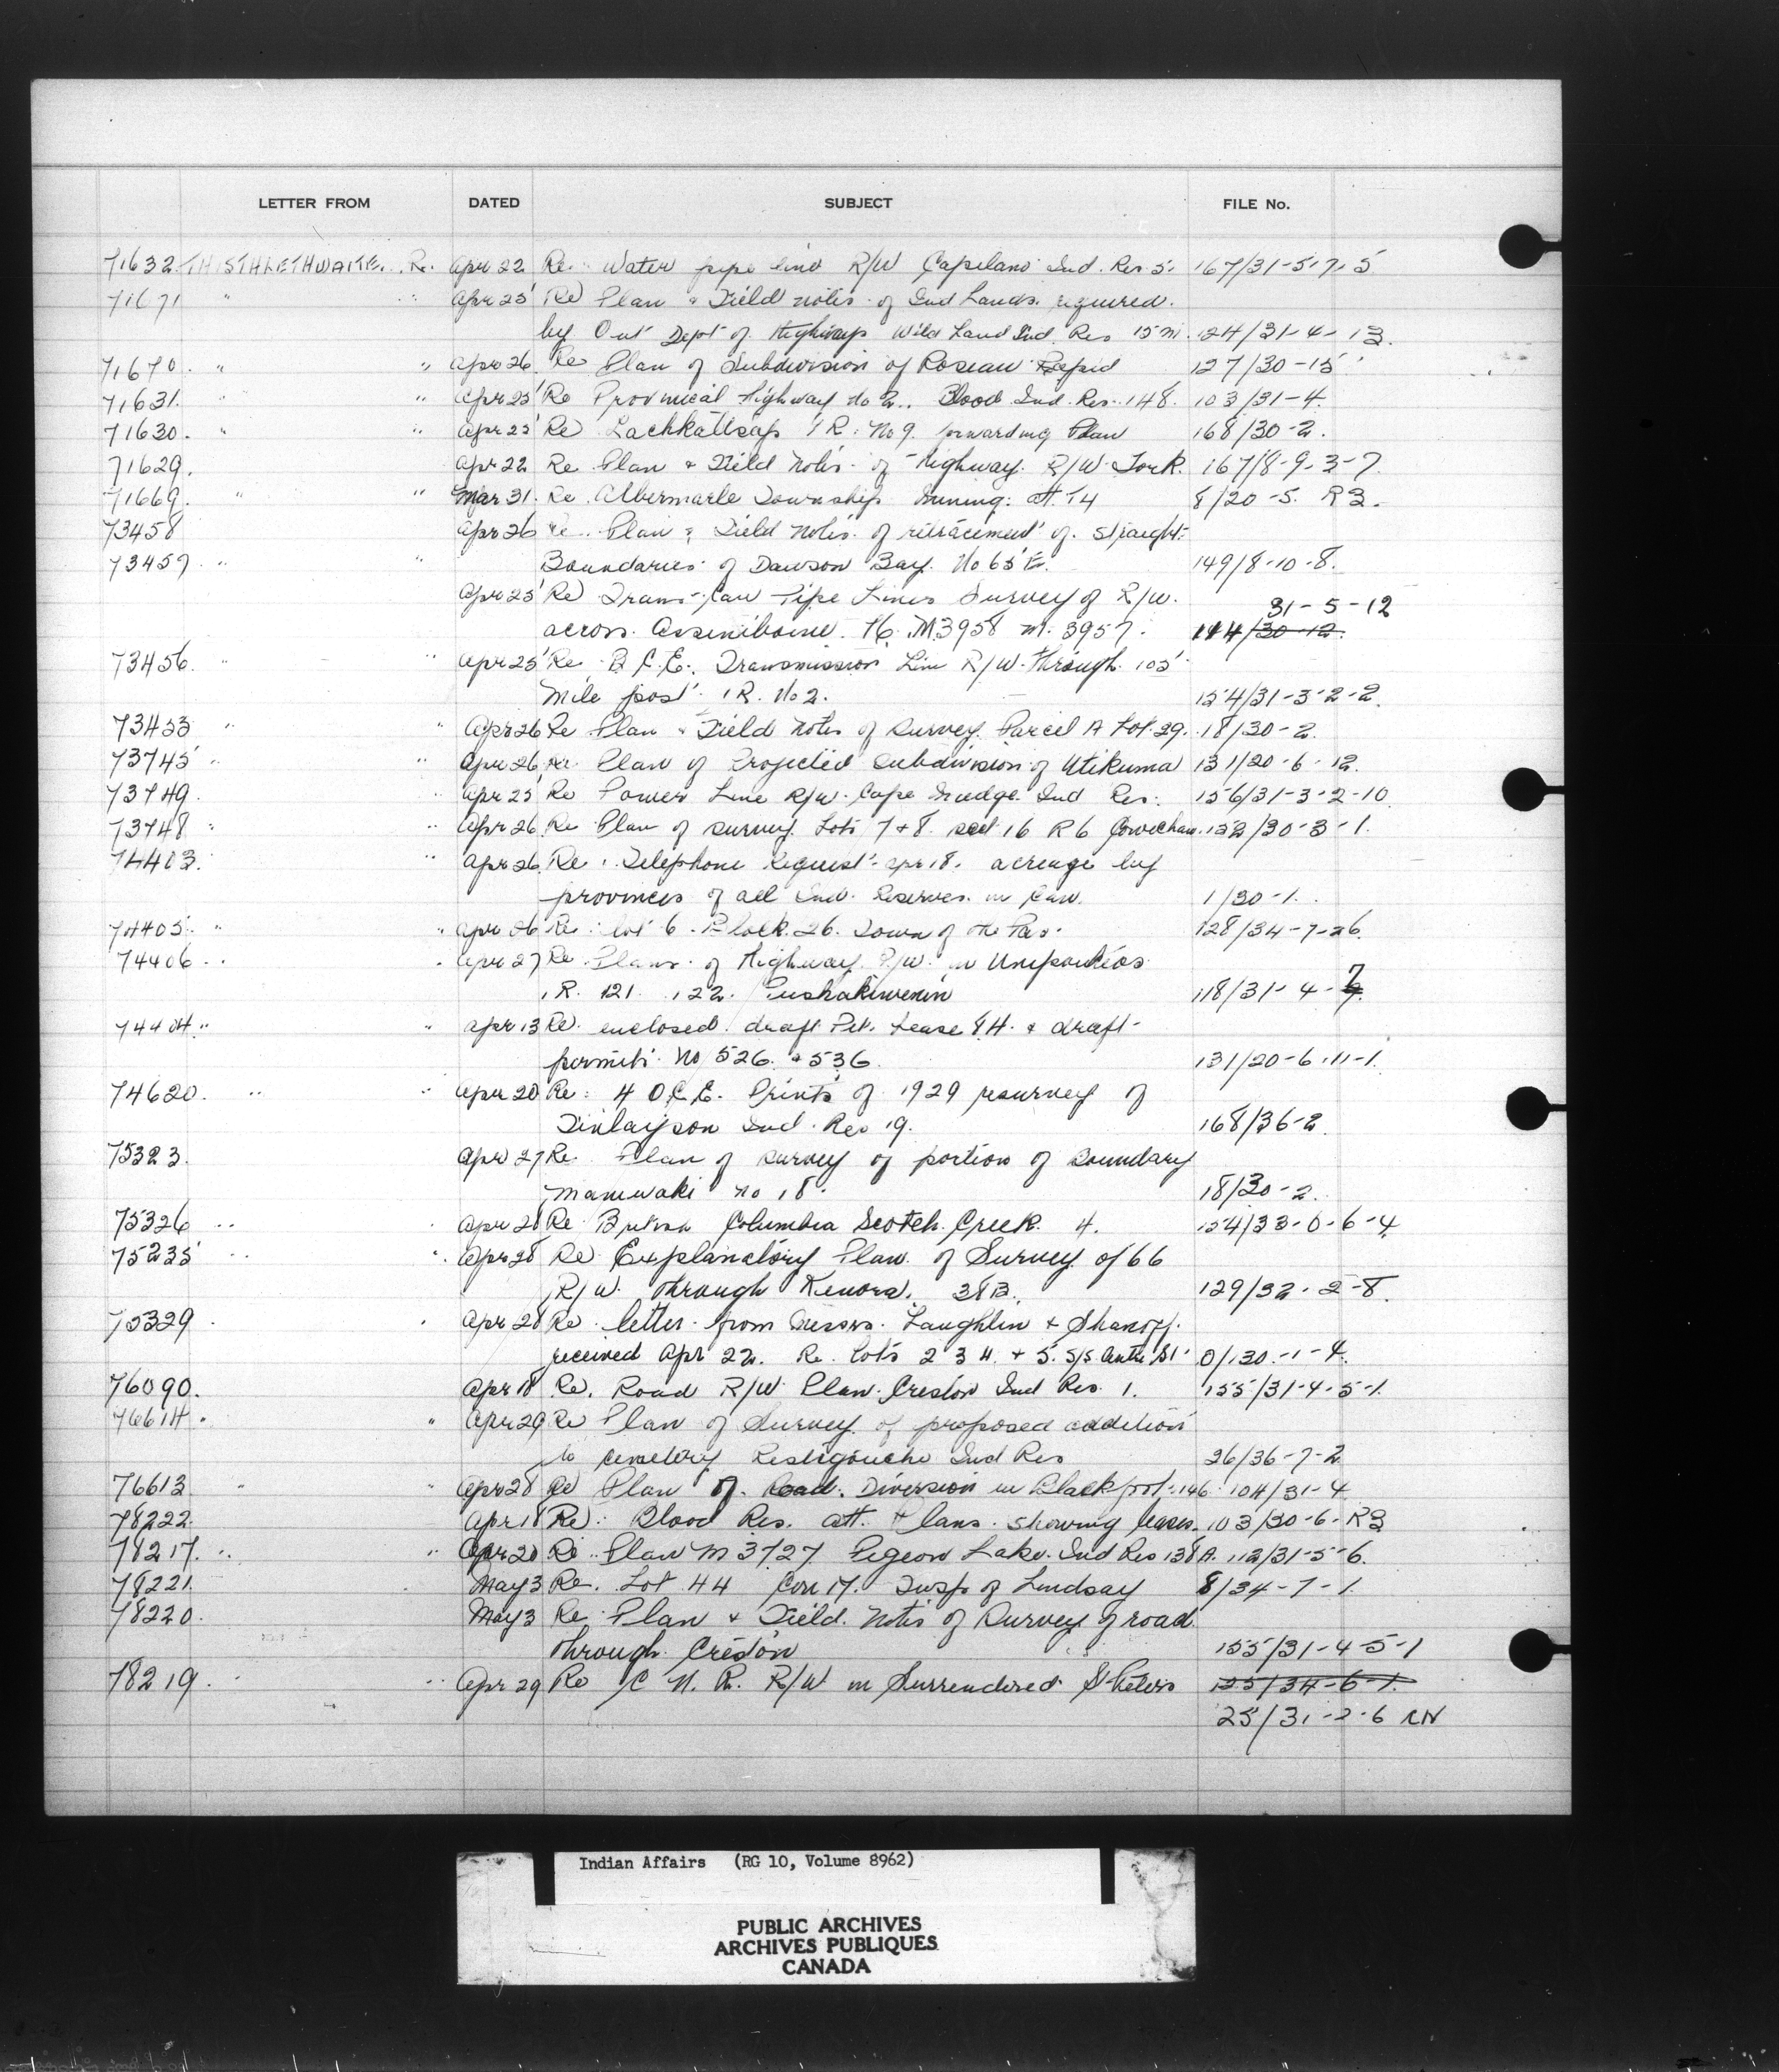 LETTER FROM DATED SUBJECT FILE No.
71632 THISTHLETHWAITE, R. Apr 22 Re. Water pipe line R/W Capilano Ind. Res 5. 167/31-5-7-5
71671 " " Apr 25 Re Plan & Field notes of Ind Lands required
by Ont Dept of Highways Wild Land Ind. Res 15 M. 124/31-4-13.
71670. " " Apr 26 Re Plan of Subdivision of Roseau Rapid 127/30-15
71631. " " Apr 25 Re Provincial Highway No 2. Blood Ind. Res. 148. 103/31-4.
71630. " " Apr 25 Re Lachkaltsap I R. No 9. forwarding Plan 168/30-2.
71629. Apr 22 Re Plan & Field Notes of Highway R/W York. 167/8-9-3-7
71669. " " Mar 31. Re Albermarle Township Mining: att. T4 8/20-5. R3.
73458 Apr 26 Re. Plan & Field Notes of retracement of straight
73457. " " Boundaries of Dawson Bay. No 65 E. 149/8-10-8.
Apr 25 Re Trans-Can Pipe Lines Survey of R/W. 31-5-12
across Assiniboine. 76. M 3958 M. 3957. 144/30-12.
73456. " " Apr 25 Re B.C.E. Transmission Line R/W through 105
Mile post I R. No 2. 154/31-3-2-2.
73453 " " Apr 26 Re Plan & Field Notes of Survey Parcel A Lot 29. 18/30-2.
73745 " " Apr 26 Re Plan of Projected Subdivision of Utikuma 131/20-6-12.
73749. Apr 25 Re Power Line R/W. Cape Mudge Ind Res. 156/31-3-2-10
73748 " " Apr 26 Re Plan of Survey Lots 7 & 8. sect 16 R 6 Cowichan. 152/30-3-1.
74403. " Apr 26. Re. Telephone Request apr 18. acreage by
provinces of all Ind. Reserves in Can. 1/30-1.
74405. " " Apr 26 Re. lot 6. Block 26. Town of the Pas. 128/34-7-26.
74406 " " Apr 27 Re Plans of Highway R/W in Unipouheos
I.R. 121. 122. Puskakiwenin 118/31-4-7
74404. " " Apr 13 Re enclosed draft Pet. Lease 84. & draft
permits No 526. & 536. 131/20-6-11-1.
74620. " " Apr 20 Re: 4 O.C.E. Prints of 1929 resurvey of
Finlayson Ind. Res 19. 168/36-2.
75323. Apr 27 Re Plan of survey of portion of Boundary
Maniwaki No 18. 18/30-2.
75326 " " Apr 28 Re British Columbia Scotch Creek. 4. 154/33-0-6-4.
75235 " " Apr 28 Re Explanatory Plan of Survey of 66
R/W through Kenora. 38B. 129/32-2-8.
75329 " Apr 28 Re letter from Messrs. Laughlin & Shanoff.
received Apr 22. Re. Lots 2 3 4. & 5. S/S 0/130-1-4.
76090. Apr 18 Re. Road R/W Plan Creston Ind Res. 1. 155/31-4-5-1.
76614. " Apr 29 Re Plan of Survey of proposed addition
to cemetery Restigouche Ind Res 36/36-7-2
76613 " " Apr 28 Re Plan of Road Diversion in Blackfoot 146 104/31-4
78222. Apr 18 Re: Blood Res. att. Plans showing leases. 103/30-6-R3
78217. " " Apr 20 Re Plan M 3727 Pigeon Lake Ind Res 138A. 112/31-5-6.
78221 May 3 Re. Lot 44 Con 17. Twsp of Lindsay 8/34-7-1.
78220. May 3 Re Plan & Field Notes of Survey of road
through Creston 155/31-4-5-1
78219. " Apr 29 Re C N. R. R/W in Surrendered 125/34-6-1.
25/31-2-6 RN
Indian Affairs (RG 10, Volume 8962)
PUBLIC ARCHIVES
ARCHIVES PUBLIQUES
CANADA